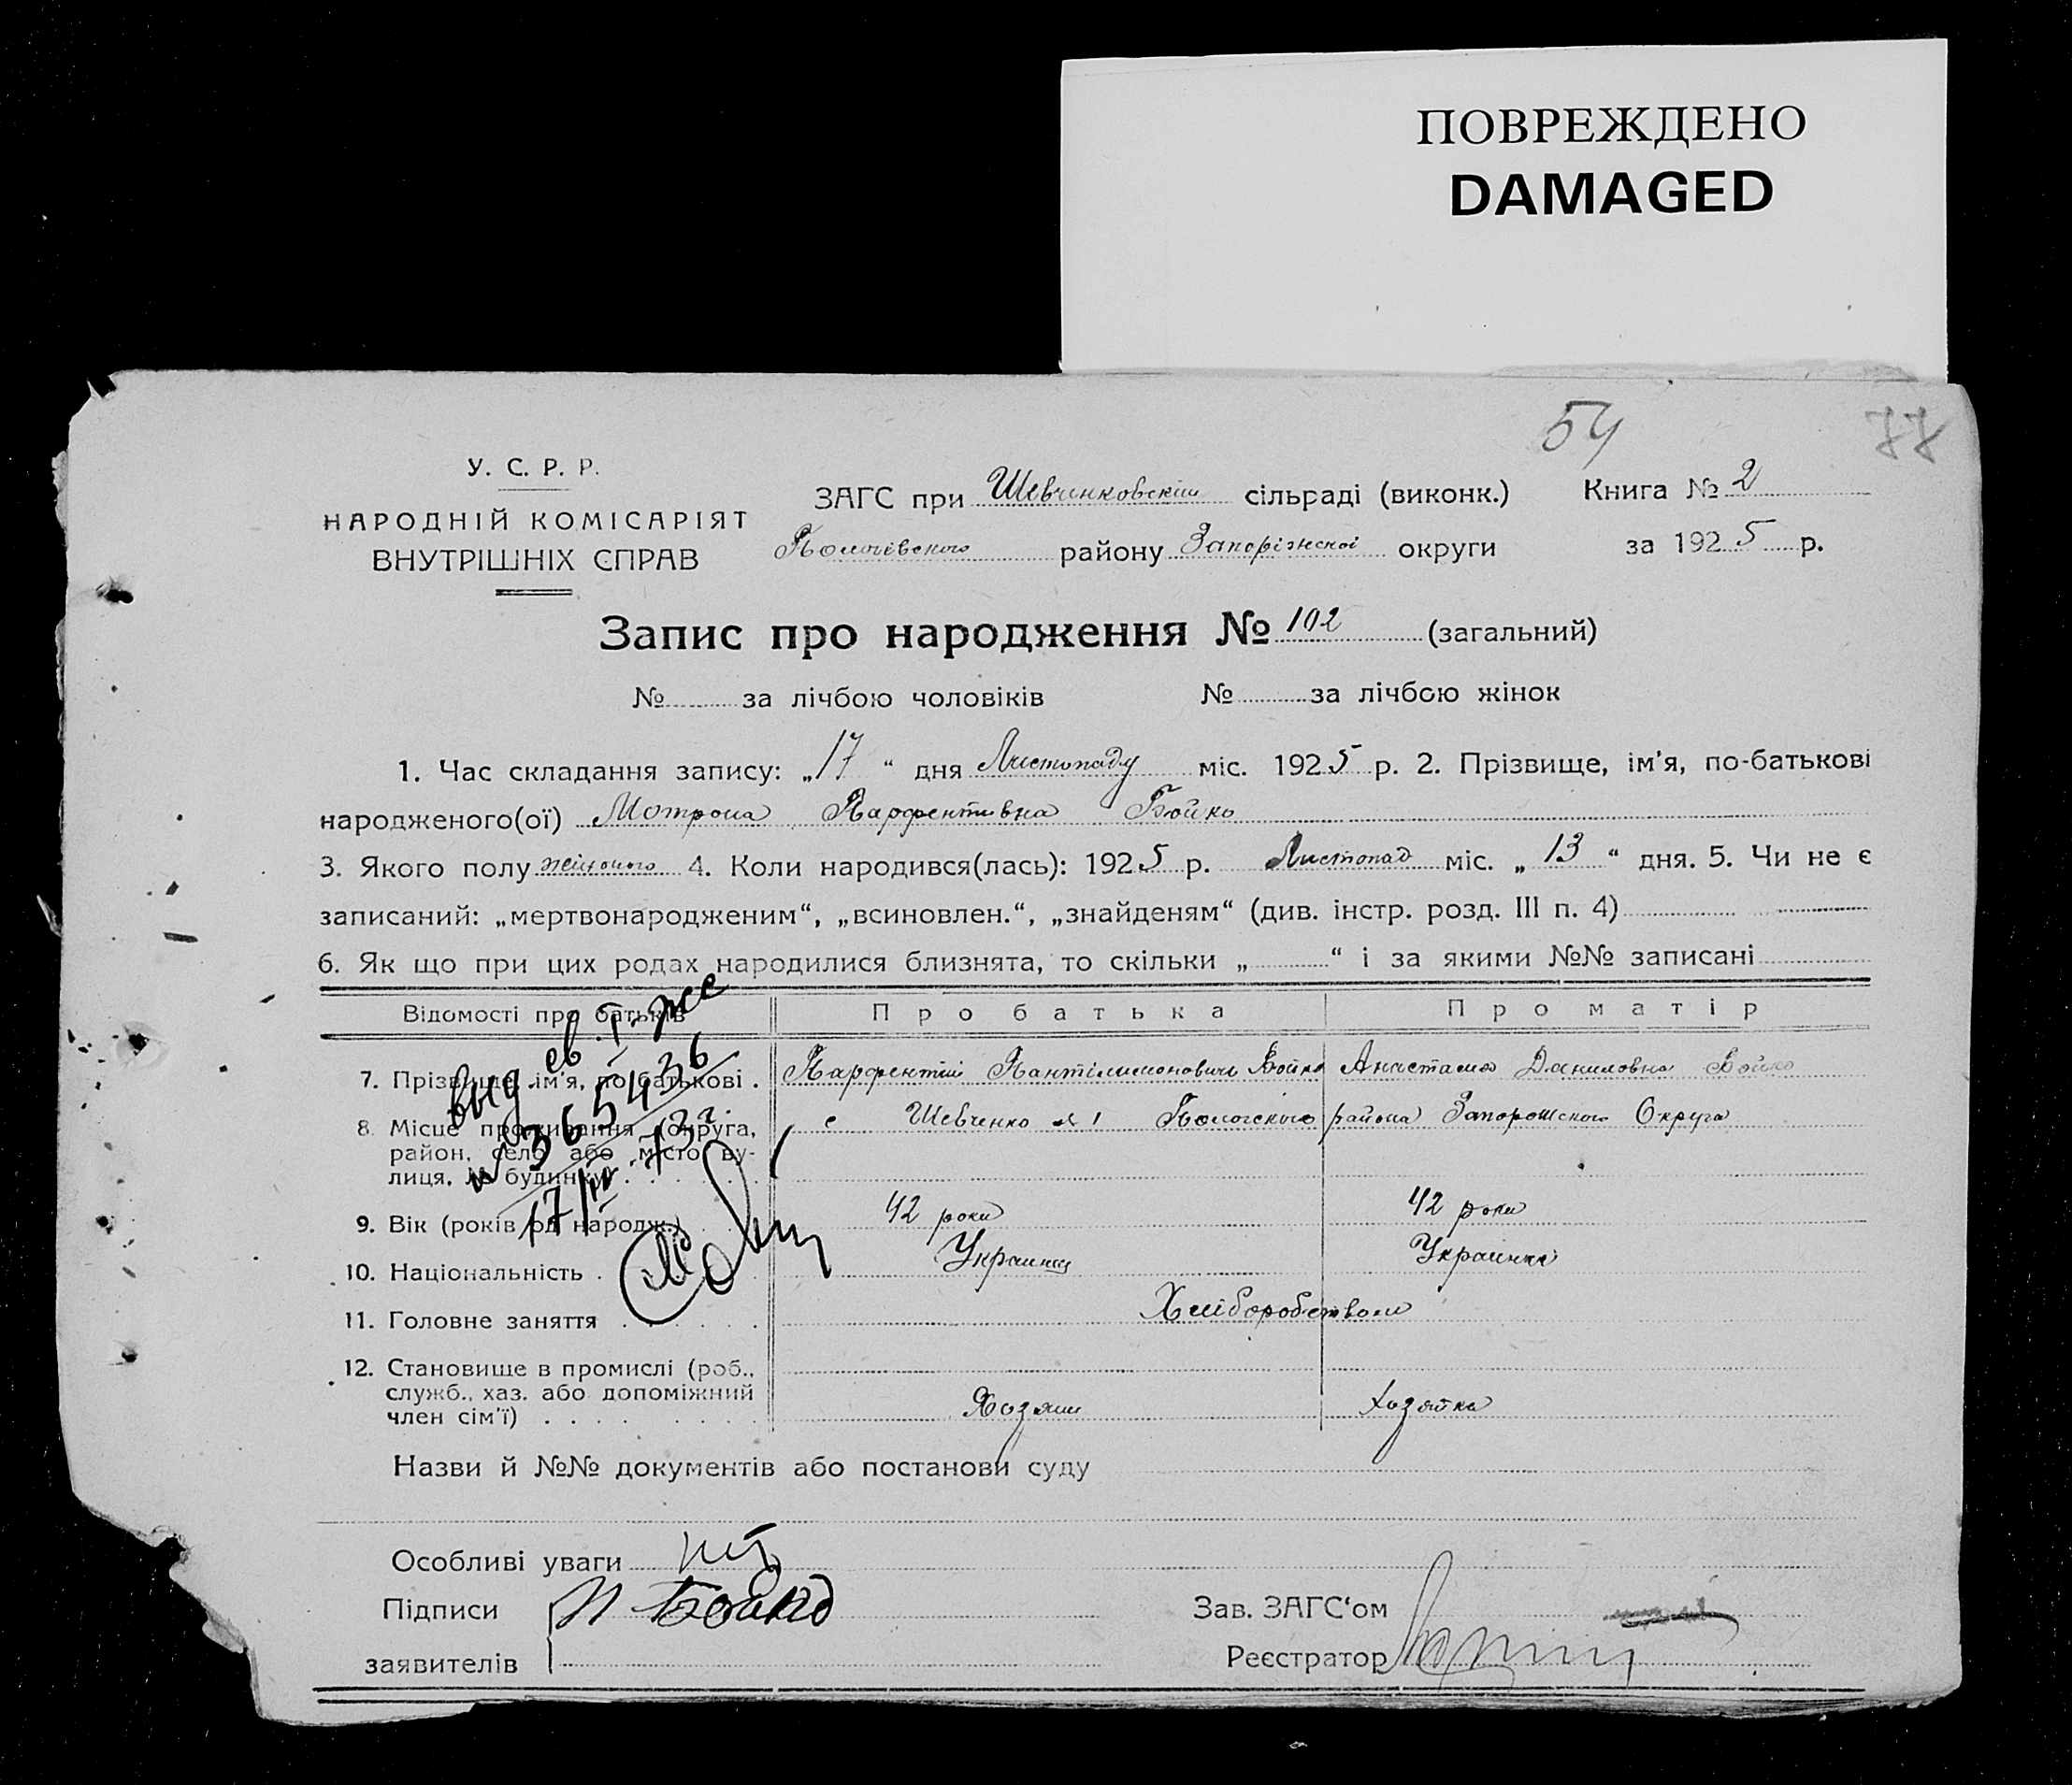 ПОВРЕЖДЕНО
DAMAGED
54 77
У. С. Р. Р.
НАРОДНІЙ КОМІСАРІЯТ
ВНУТРІШНІХ СПРАВ
ЗАГС при Шевченковскій сільраді (виконк.) Книга № 2
Пологівского району Запоріжскоі округи за 1925 р.
Запис про народження № 102 (загальний)
№ за лічбою чоловіків № за лічбою жінок
1. Час складання запису: „17“ дня Листопаду міс. 1925 р. 2. Прізвище, ім'я, по-батькові
народженого(ої) Мотрона Парфентивна Бойко
3. Якого полу жіночого 4. Коли народився(лась): 1925 р. Листопад міс. „13“ дня. 5. Чи не є
записаний: „мертвонародженим“, „всиновлен.“, „знайденям“ (див. інстр. розд. III п. 4)
6. Як що при цих родах народилися близнята, то скільки „ “ і за якими №№ записані
Відомості про батьків Про батька Про матір
7. Прізвище, ім'я, по-батькові . Парфентій Пантілимонович Бойко Анастасия Даниловна Бойко
8. Місце проживання (округа, район, село або місто ву- лиця, № будинку) с Шевченко № 1 Пологского района Запорошского Округа
9. Вік (років од народж.) 42 роки 42 роки
10. Національність . Украинец Украинка
11. Головне заняття Хліборобством
12. Становище в промислі (роб., служб., хаз. або допоміжний член сім'ї) Хозяин Хозяйка
выд св. I-же
№ 365436
17/IV-73г.
Назви й №№ документів або постанови суду
Особливі уваги
Підписи П Бойко Зав. ЗАГС‘ом
заявителів Реєстратор